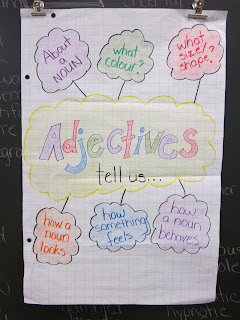 About
a
NOUN
what
colour?
what
size?/
shape?
Adjectives
tell us...
how a
noun
looks
how
something
feels
how
a noun
behaves
hypnotic